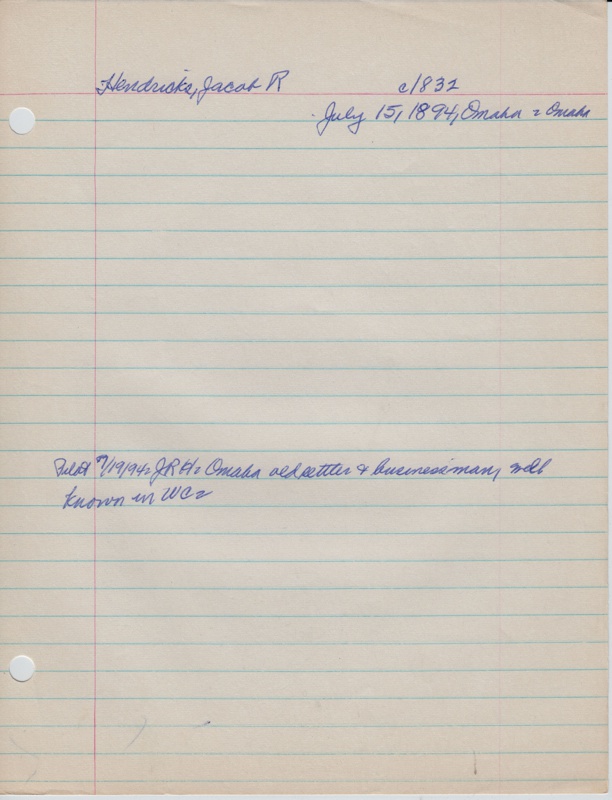 Hendricks, Jacob R c1832
July 15, 1894, Omaha = Omaha
Pilot 7/19/94= JRH= Omaha old settler & businessman, well
known in WC=